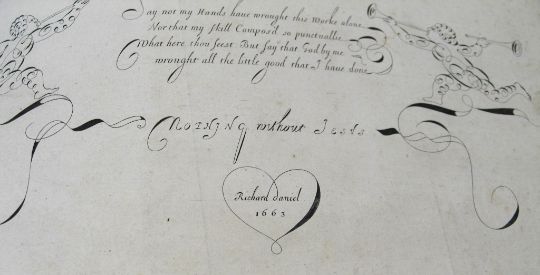 Say not my Hands haue wrought this Worke alone
Nor that my skill Compos'd so punctuallie
What here thou seest But say that God by me
wrought all the little good that I have done
NOTHING without Jesus
Richard daniel
1663